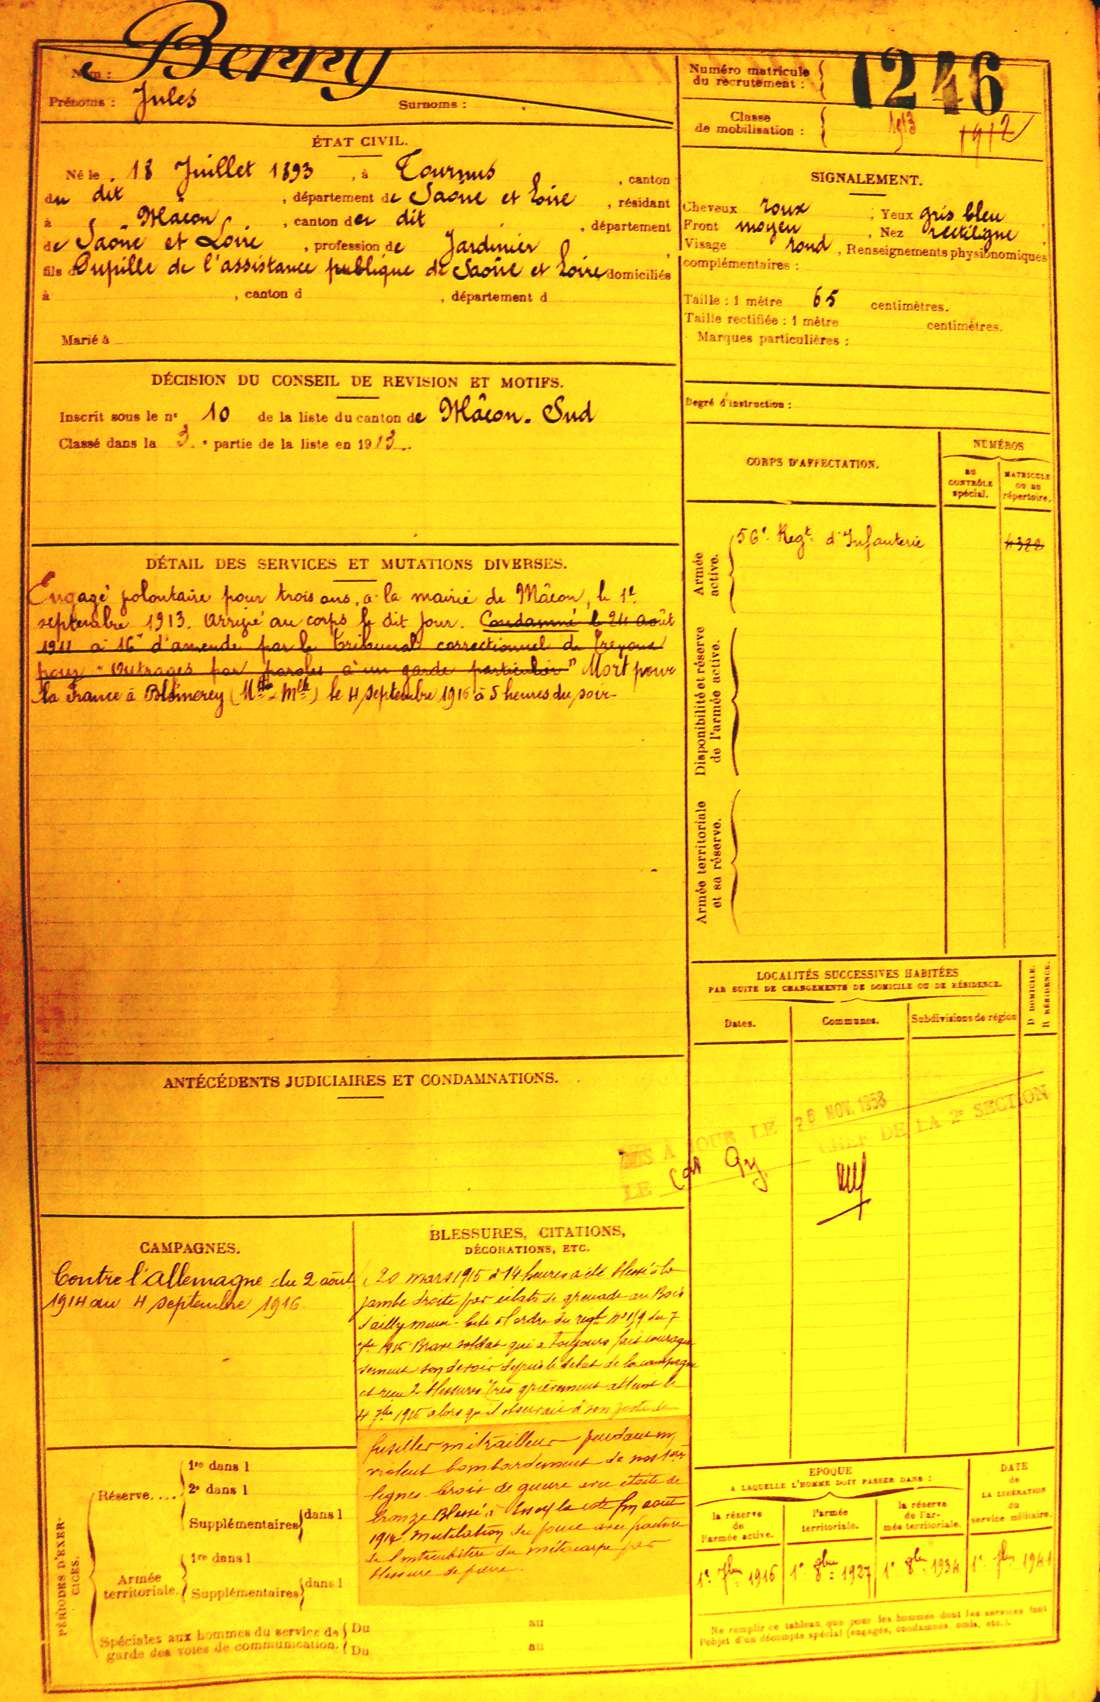 Nom : Berry
Prénoms : Jules Surnoms :
Numéro matricule du recrutement : 1246
Classe de mobilisation : 1913 1912
ÉTAT CIVIL.
Né le 18 Juillet 1893, à Tournus, canton
du dit, département de Saône et Loire, résidant
à Mâcon, canton du dit, département
de Saône et Loire, profession de Jardinier
fils d Pupille de l'assistance publique de Saône et Loire domiciliés
à , canton d , département d
Marié à
SIGNALEMENT.
Cheveux roux ; Yeux gris bleu
Front moyen , Nez rectiligne
Visage rond , Renseignements physionomiques
complémentaires :
Taille : 1 mètre 65 centimètres.
Taille rectifiée : 1 mètre centimètres.
Marques particulières :
Degré d'instruction :
DÉCISION DU CONSEIL DE REVISION ET MOTIFS.
Inscrit sous le n° 10 de la liste du canton de Mâcon. Sud
Classé dans la 3e partie de la liste en 1913.
CORPS D'AFFECTATION.
NUMÉROS
AU CONTRÔLE spécial.
MATRICULE OU AU répertoire.
Armée active.
56e Regt d'Infanterie
4322
Disponibilité et réserve de l'armée active.
Armée territoriale et sa réserve.
DÉTAIL DES SERVICES ET MUTATIONS DIVERSES.
Engagé volontaire pour trois ans, à la mairie de Mâcon, le 1er
septembre 1913. Arrivé au corps le dit jour. Condamné le 24 août
1911 à 16f d'amende par le tribunal correctionnel de
pour "Outrages par paroles à un garde particulier" Mort pour
la France à (Mthe-Mlle) le 4 septembre 1916 à 5 heures du soir-
LOCALITÉS SUCCESSIVES HABITÉES
PAR SUITE DE CHANGEMENTS DE DOMICILE OU DE RÉSIDENCE.
Dates.
Communes.
Subdivisions de région
D DOMICILE.
R RÉSIDENCE.
ANTÉCÉDENTS JUDICIAIRES ET CONDAMNATIONS.
MIS A JOUR LE 26 NOV. 1958
LE CHEF DE LA 2e SECTION
CAMPAGNES.
Contre l'Allemagne du 2 août
1914 au 4 septembre 1916
BLESSURES, CITATIONS,
DÉCORATIONS, ETC.
20 mars 1915 à 14 heures a été blessé à la
jambe droite par éclats de grenade au Bois
d'Ailly meuse. Cité à l'ordre du regt n° 119 du 7
Brave soldat qui a toujours fait courageu
sement son devoir depuis le début de la campagne
et reçu 2 blessures très grièvement atteint le
4 7bre 1916 alors qu'il observait à son poste de
fusilier mitrailleur pendant un
violent bombardement de nos 1ères
lignes Croix de guerre avec étoile de
bronze Blessé à août
1914 Mutilation du pouce avec fracture
de l'extrémité du métacarpe par
blessure de guerre.
PÉRIODES D'EXERCICES.
Réserve....
1re dans l
2e dans l
Supplémentaires dans l
Armée territoriale.
1re dans l
Supplémentaires dans l
Spéciales aux hommes du service de garde des voies de communication.
Du au
Du au
EPOQUE
A LAQUELLE L'HOMME DOIT PASSER DANS :
la réserve de l'armée active.
l'armée territoriale.
la réserve de l'armée territoriale.
DATE de LA LIBÉRATION du service militaire.
1er 7bre 1916
1er 8bre 1927
1er 8bre 1934
1er 7bre 1941
Ne remplir ce tableau que pour les hommes dont les services font
l'objet d'un décompte spécial (engagés, condamnés, omis, etc.).